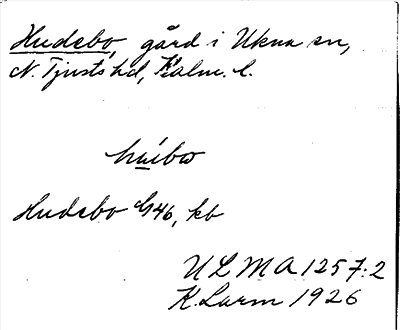 Hudebo, gård i Ukna sn,
N. Tjusts hd, Kalm. l.
Hudebo G46, kb
ULMA 1257:2
K. Larm 1926